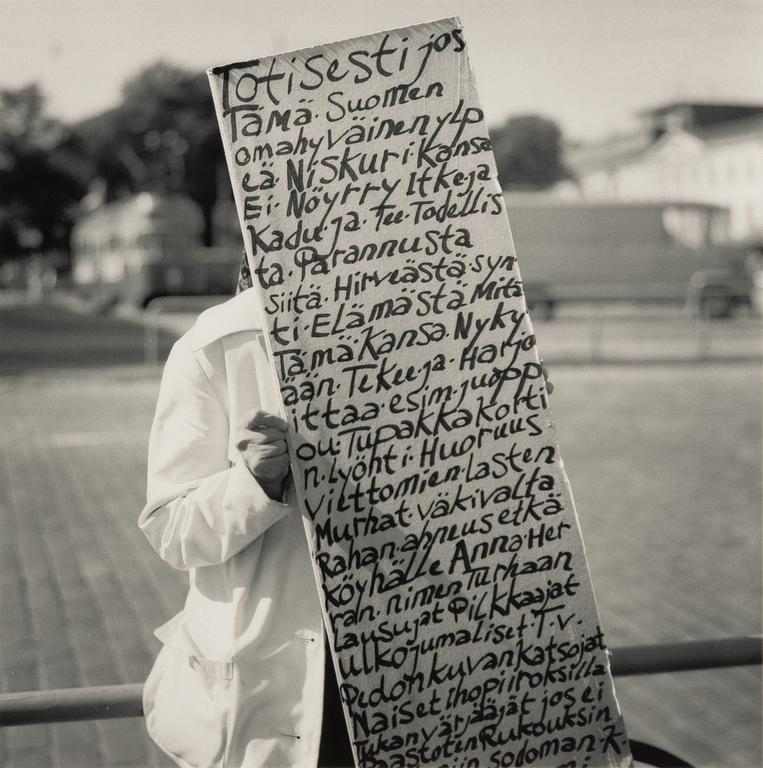 Totisesti jos
Tämä. Suomen
omahyväinen ylp
eä. Niskuri. Kansa
Ei. Nöyrry Itkeja
Kadu. ja. Tee. Todellis
ta. Parannusta
siitä. Hirveästä. syn
ti. Elämästä. Mitä
Tämä. Kansa. Nyky
ään. Tekee. ja. Harjo
ittaa. esim. juopp
ou. Tupakka Kortti
n. lyöhti. Huoruus
Viattomien. Lasten
Murhat. väkivalta
Rahan. ahneus. etkä
köyhälle Anna. Her
ran. nimen Turhaan
Lausujat Pilkkaajat
ulkojumaliset. T.v.
Pedon kuvankatsojat
Naiset ihopiiroksilla
Tukanvärjääjät jos ei
Paastoten Rukouksin
sodoman. K.